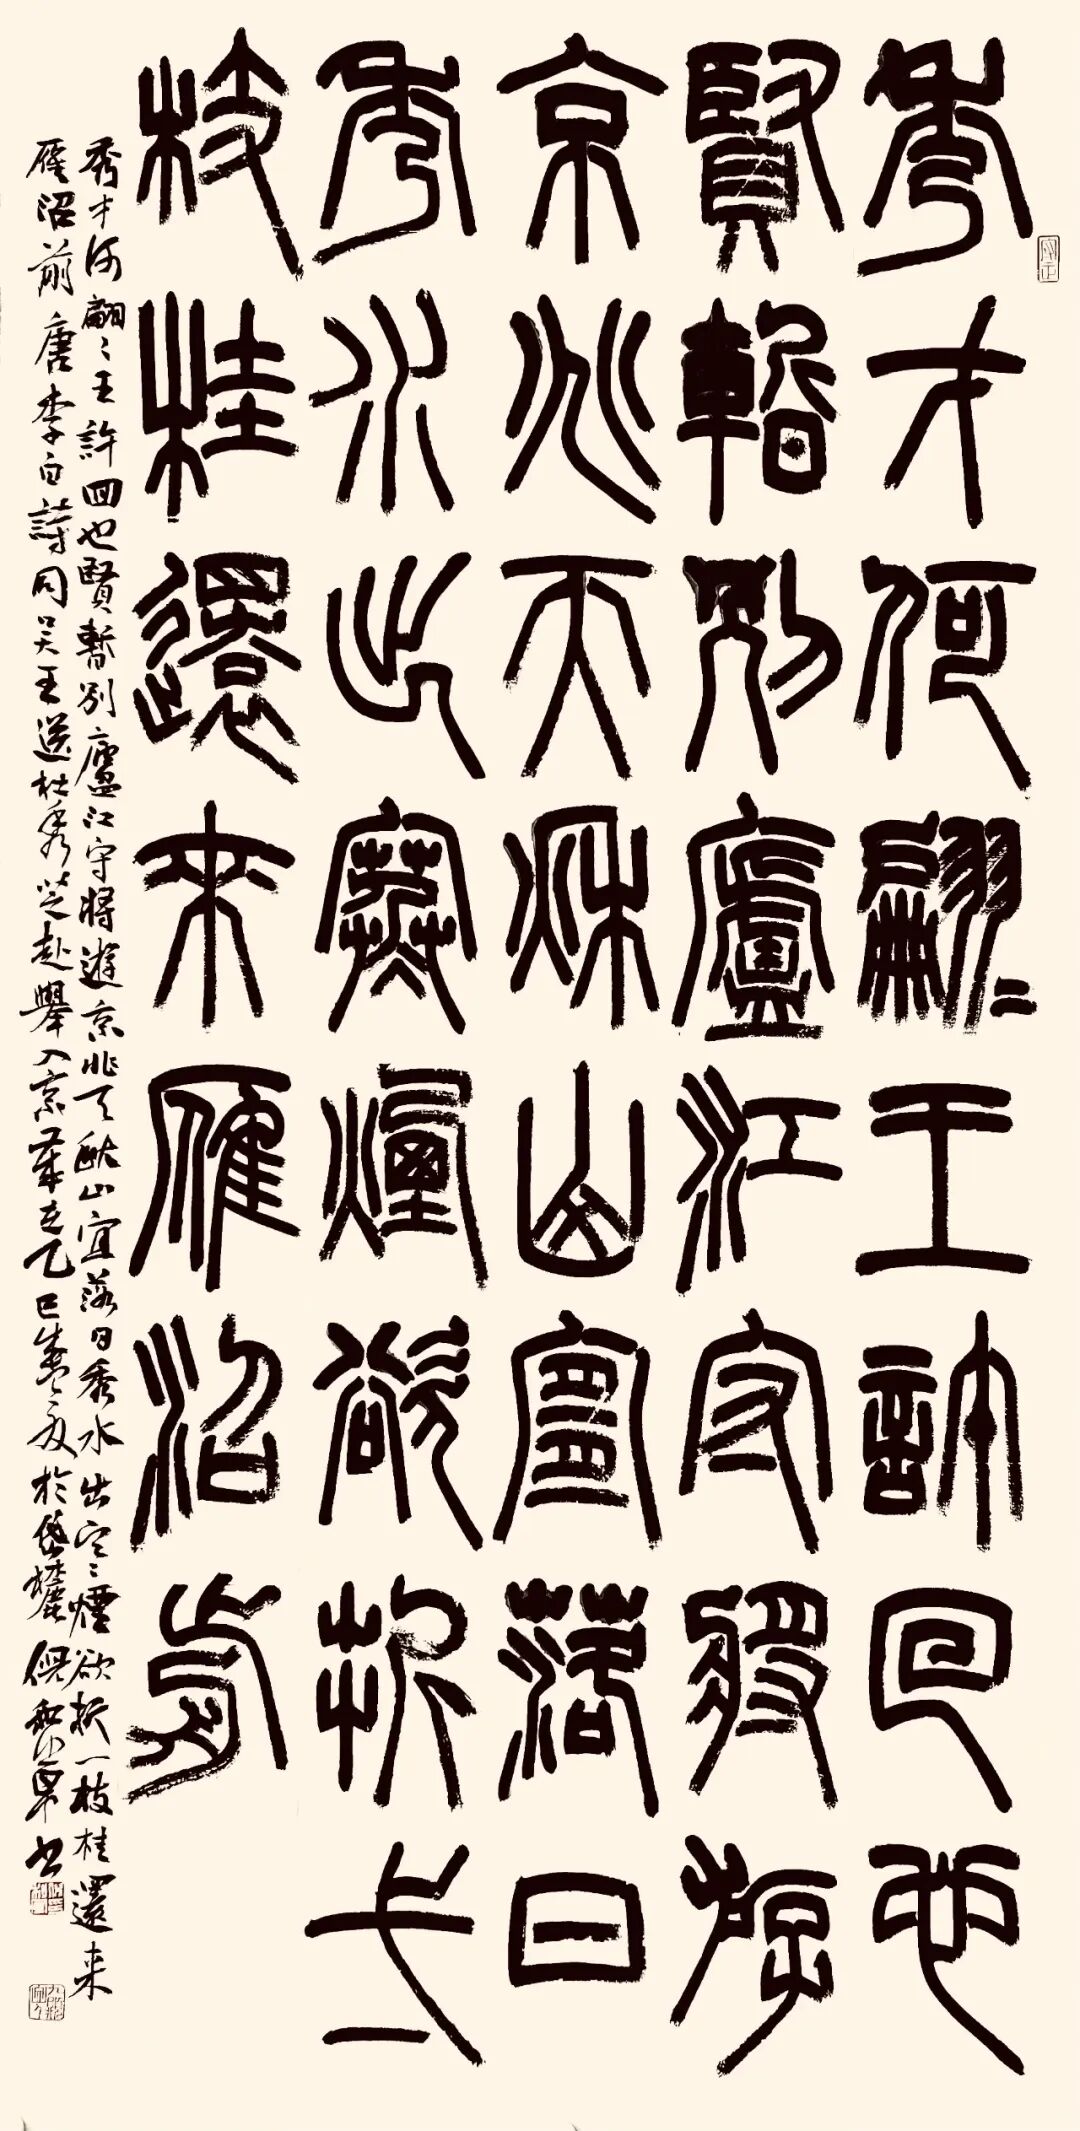 秀才何翩〻王許回也
賢暫別廬江守將游
京兆天秋山宜落日
秀水出寒煙欲折弌
枝桂還來雁沼前
秀才何翩〻王許回也賢暫別廬江守將遊京兆天秋山宜落日秀水出寒煙欲折一枝桂還来
雁沼前唐李白詩同吳王送杜秀芝赴舉入京歲在乙巳盛夏於岱麓倪和軍書